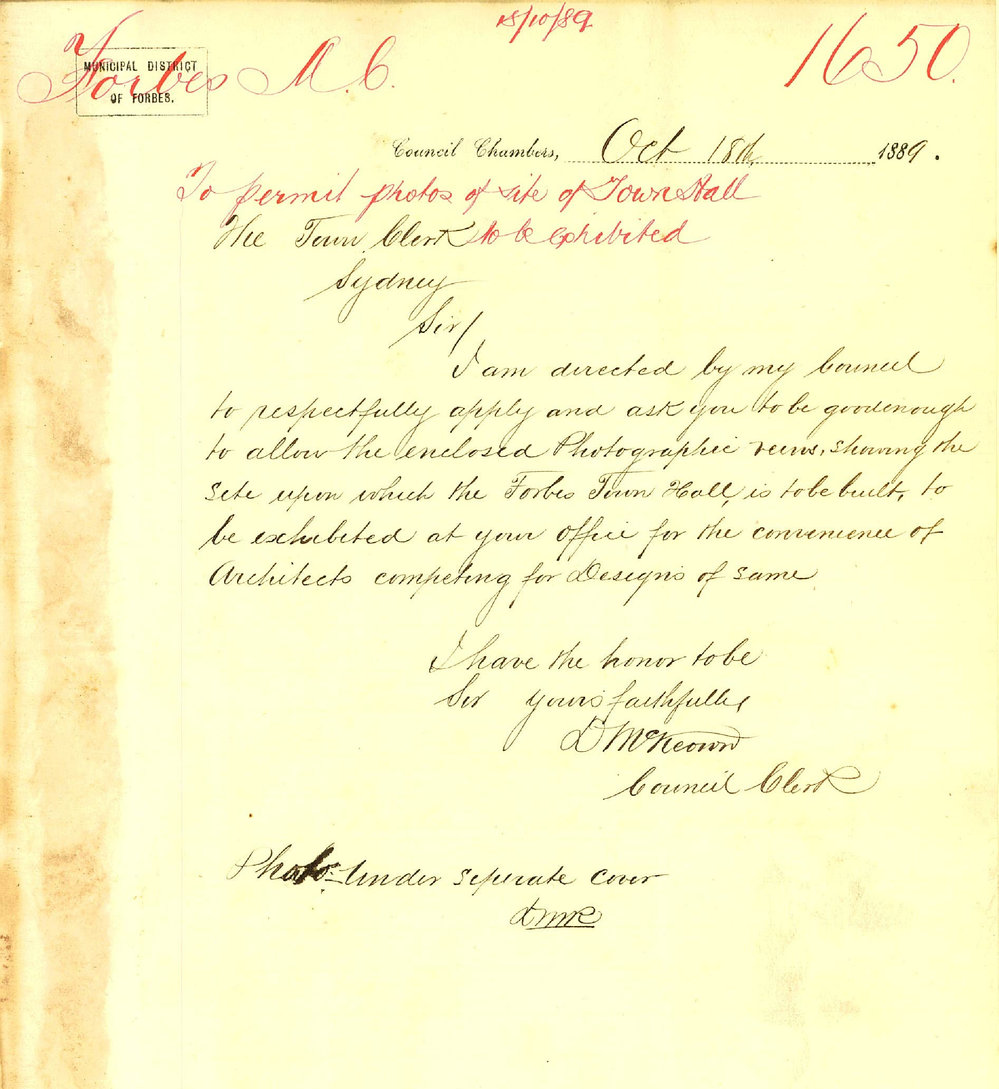 18/10/89
Forbes M.C. 1650.
MUNICIPAL DISTRICT
OF FORBES.
Council Chambers, Oct 18th 1889.
To permit photos of site of Town Hall
to be exhibited
The Town Clerk
Sydney
Sir/
I am directed by my Council
to respectfully apply and ask you to be good enough
to allow the enclosed Photographic veiws, showing the
site upon which the Forbes Town Hall, is to be built, to
be exhibited at your office for the convenience of
Architects competing for Designs of same
I have the honor to be
Sir yours faithfully
D McKeown
Council Clerk
Photo: Under seperate cover
DMcK